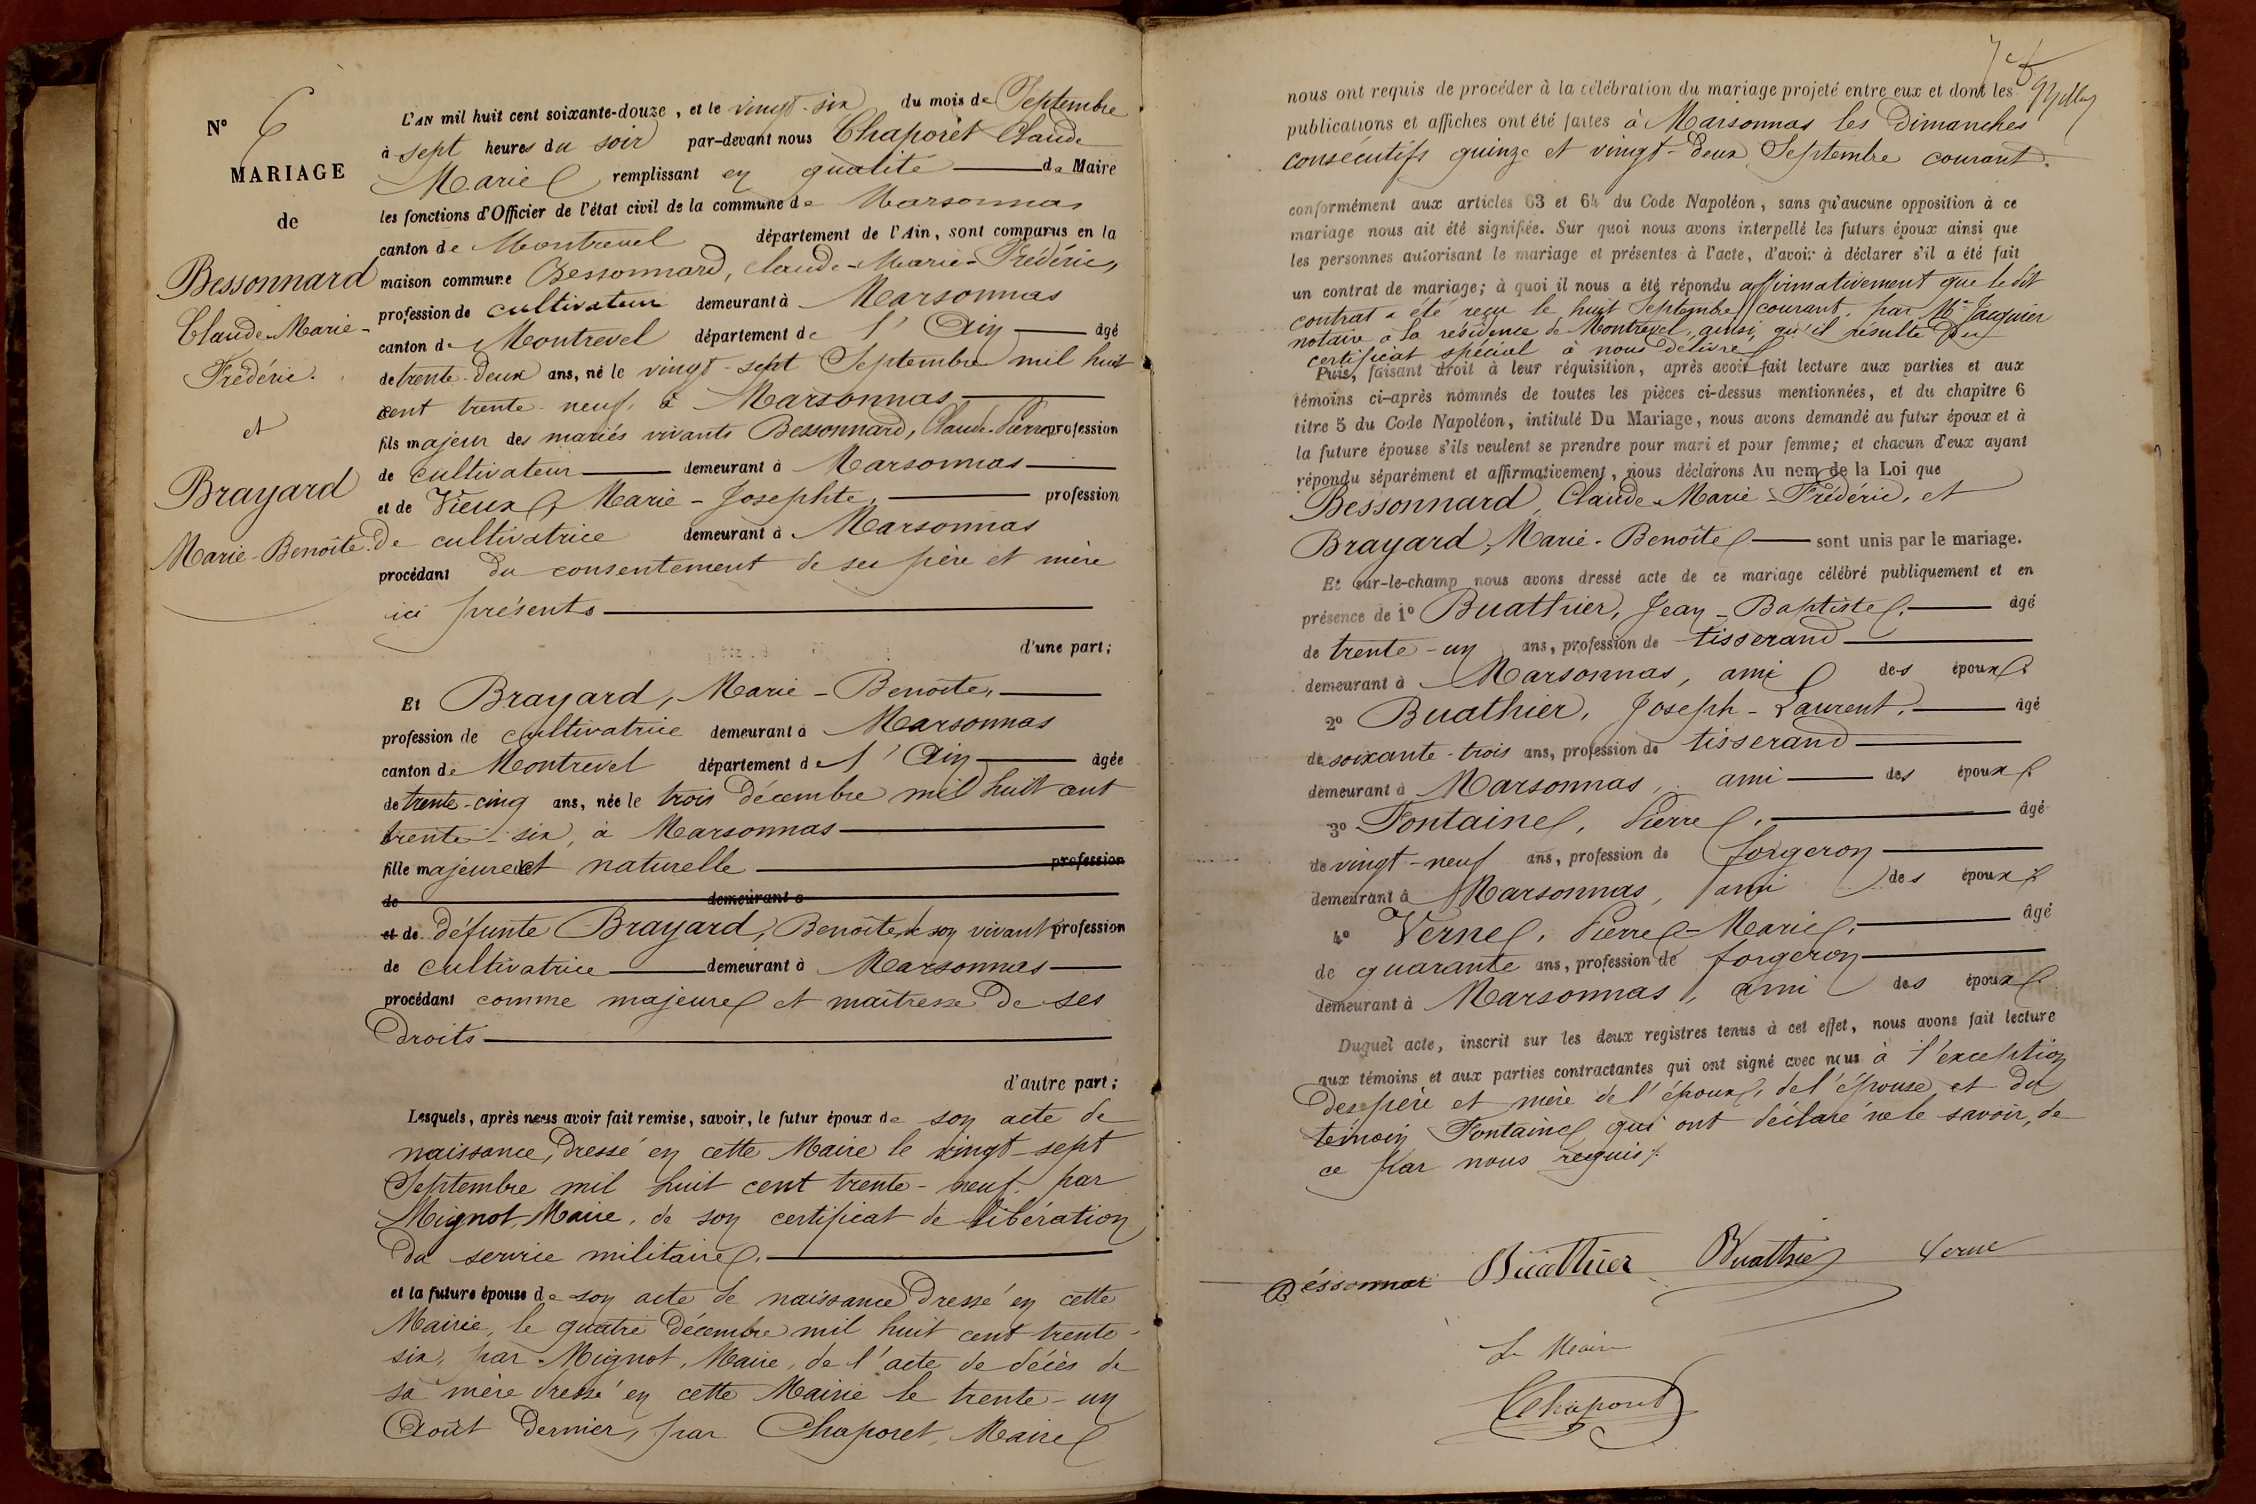 N° 6
MARIAGE
de
Bessonnard
Claude-Marie-
Frédéric.
et
Brayard
Marie-Benoîte.
L'AN mil huit cent soixante-douze, et le vingt-six du mois de Septembre
à sept heures du soir par-devant nous Chaporet Claude
Marie remplissant en qualité de Maire
les fonctions d'Officier de l'état civil de la commune de Marsonnas
canton de Montrevel département de l'Ain, sont comparus en la
maison commune Bessonnard, Claude-Marie-Frédéric,
profession de cultivateur demeurant à Marsonnas
canton de Montrevel département de l'Ain âgé
de trente-deux ans, né le vingt-sept Septembre mil huit
cent trente-neuf, à Marsonnas
fils majeur des mariés vivants Bessonnard, Claude-Pierre profession
de cultivateur demeurant à Marsonnas
et de Vieux, Marie-Josephte, profession
de cultivatrice demeurant à Marsonnas
procédant du consentement de ses père et mère
ici présents
d'une part;
Et Brayard, Marie-Benoîte,
profession de cultivatrice demeurant à Marsonnas
canton de Montrevel département de l'Ain âgée
de trente-cinq ans, née le trois Décembre mil huit cent
trente-six, à Marsonnas
fille majeure et naturelle profession
de demeurant à
et de défunte Brayard, Benoîte, de son vivant profession
de cultivatrice demeurant à Marsonnas
procédant comme majeure et maîtresse de ses
droits
d'autre part;
Lesquels, après nous avoir fait remise, savoir, le futur époux de son acte de
naissance, dressé en cette Mairie le vingt-sept
Septembre mil huit cent trente-neuf par
Mignot, Maire, de son certificat de libération
du service militaire.
et la future épouse de son acte de naissance dressé en cette
Mairie, le quatre Décembre mil huit cent trente-
six, par Mignot, Maire, de l'acte de décès de
sa mère dressé en cette Mairie le trente-un
Août dernier, par Chaporet, Maire
nous ont requis de procéder à la célébration du mariage projeté entre eux et dont les
publications et affiches ont été faites à Marsonnas les Dimanches
consécutifs quinze et vingt-deux Septembre courant.
conformément aux articles 63 et 64 du Code Napoléon, sans qu'aucune opposition à ce
mariage nous ait été signifiée. Sur quoi nous avons interpellé les futurs époux ainsi que
les personnes autorisant le mariage et présentes à l'acte, d'avoir à déclarer s'il a été fait
un contrat de mariage; à quoi il nous a été répondu affirmativement que ledit
contrat a été reçu le huit Septembre courant, par Me Jacquier
notaire à la résidence de Montrevel, ainsi qu'il résulte du
certificat spécial à nous délivré
Puis, faisant droit à leur réquisition, après avoir fait lecture aux parties et aux
témoins ci-après nommés de toutes les pièces ci-dessus mentionnées, et du chapitre 6
titre 5 du Code Napoléon, intitulé Du Mariage, nous avons demandé au futur époux et à
la future épouse s'ils veulent se prendre pour mari et pour femme; et chacun d'eux ayant
répondu séparément et affirmativement, nous déclarons Au nom de la Loi que
Bessonnard, Claude-Marie-Frédéric, et
Brayard, Marie-Benoîte sont unis par le mariage.
Et sur-le-champ nous avons dressé acte de ce mariage célébré publiquement et en
présence de 1° Buathier, Jean-Baptiste, âgé
de trente-un ans, profession de tisserand
demeurant à Marsonnas, ami des époux
2° Buathier, Joseph-Laurent, âgé
de soixante-trois ans, profession de tisserand
demeurant à Marsonnas, ami des époux
3° Fontaine, Pierre, âgé
de vingt-neuf ans, profession de forgeron
demeurant à Marsonnas, ami des époux
4° Verne, Pierre-Marie, âgé
de quarante ans, profession de forgeron
demeurant à Marsonnas, ami des époux
Duquel acte, inscrit sur les deux registres tenus à cet effet, nous avons fait lecture
aux témoins et aux parties contractantes qui ont signé avec nous à l'exception
des père et mère de l'époux, de l'épouse et du
témoin Fontaine qui ont déclaré ne le savoir, de
ce par nous requis.
Béssonnar Buathier Buathier Verne
Le Maire
Chaporet